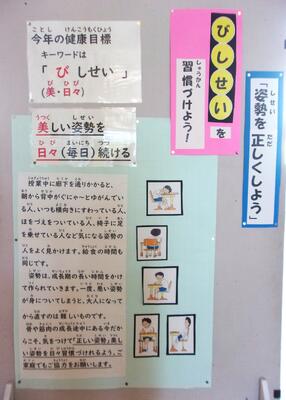 今年の健康目標
ことし けんこうもくひょう
キーワードは
「 び しせい 」
び ひび
(美・日々)
うつく しせい
美しい姿勢を
ひび まいにち つづ
日々(毎日)続ける
びしせい を
しゅうかん
習慣づけよう!
「姿勢を 正しくしよう」
しせい ただ
授業中に廊下を通りかかると、
朝から背中がぐにゃ~とゆがんでい
る人、いつも横向きにすわっている人、
ほおづえをついている人、椅子に足
を乗せている人など気になる姿勢の
人をよく見かけます。給食の時間も
同じです。
姿勢は、成長期の長い時間をかけ
て作られていきます。一度、悪い姿勢
が身についてしまうと、大人になって
から直すのは難しいものです。
骨や筋肉の成長途中にある今だか
らこそ、気をつけて「正しい姿勢」「美し
い姿勢」を日々習慣づけれるよう、ご
家庭でもご協力をお願いします。